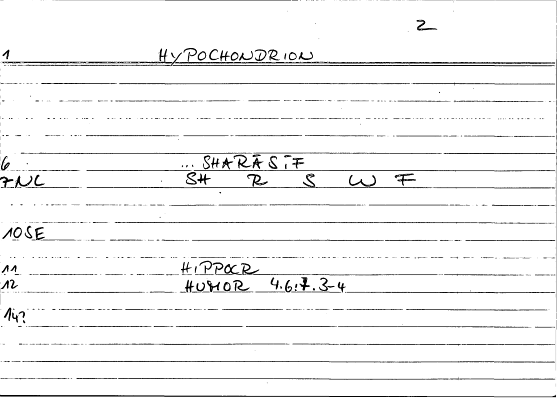 2
1 HYPOCHONDRION
6 ... SHARĀSĪF
7NL SH R S W F
10SE
11 HIPPOCR
12 HUMOR 4.6:7.3-4
14?